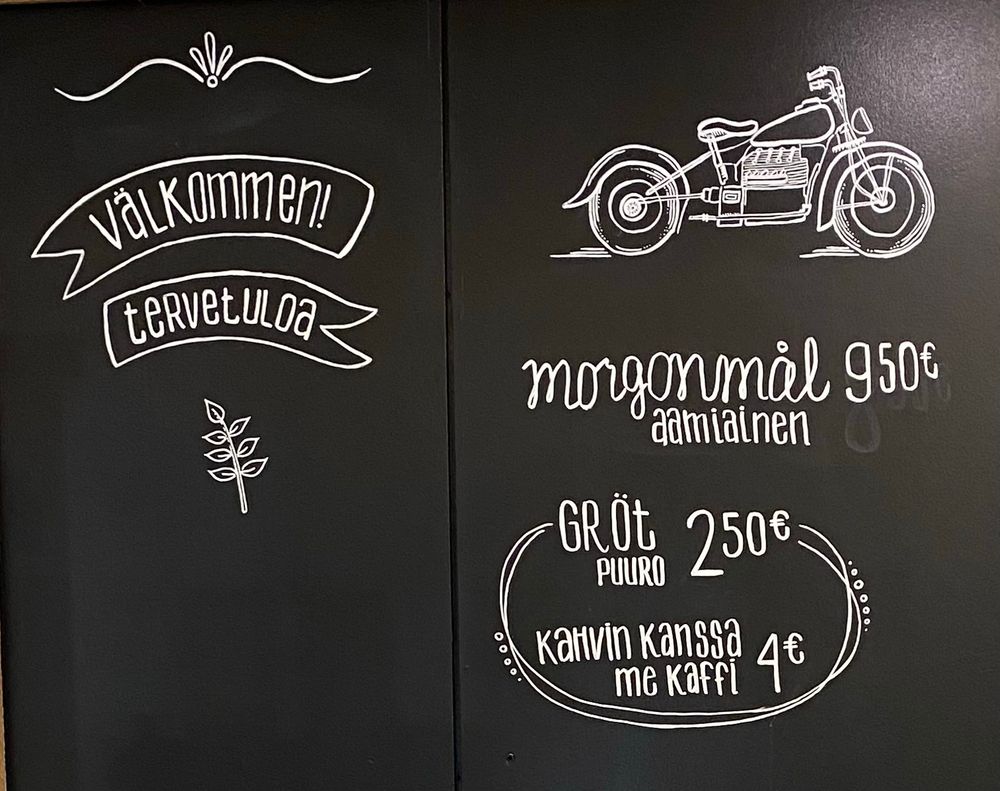 Välkommen!
tervetuloa
morgonmål 9 50€
aamiainen
Gröt 2 50€
puuro
kahvin kanssa 4€
me kaffi